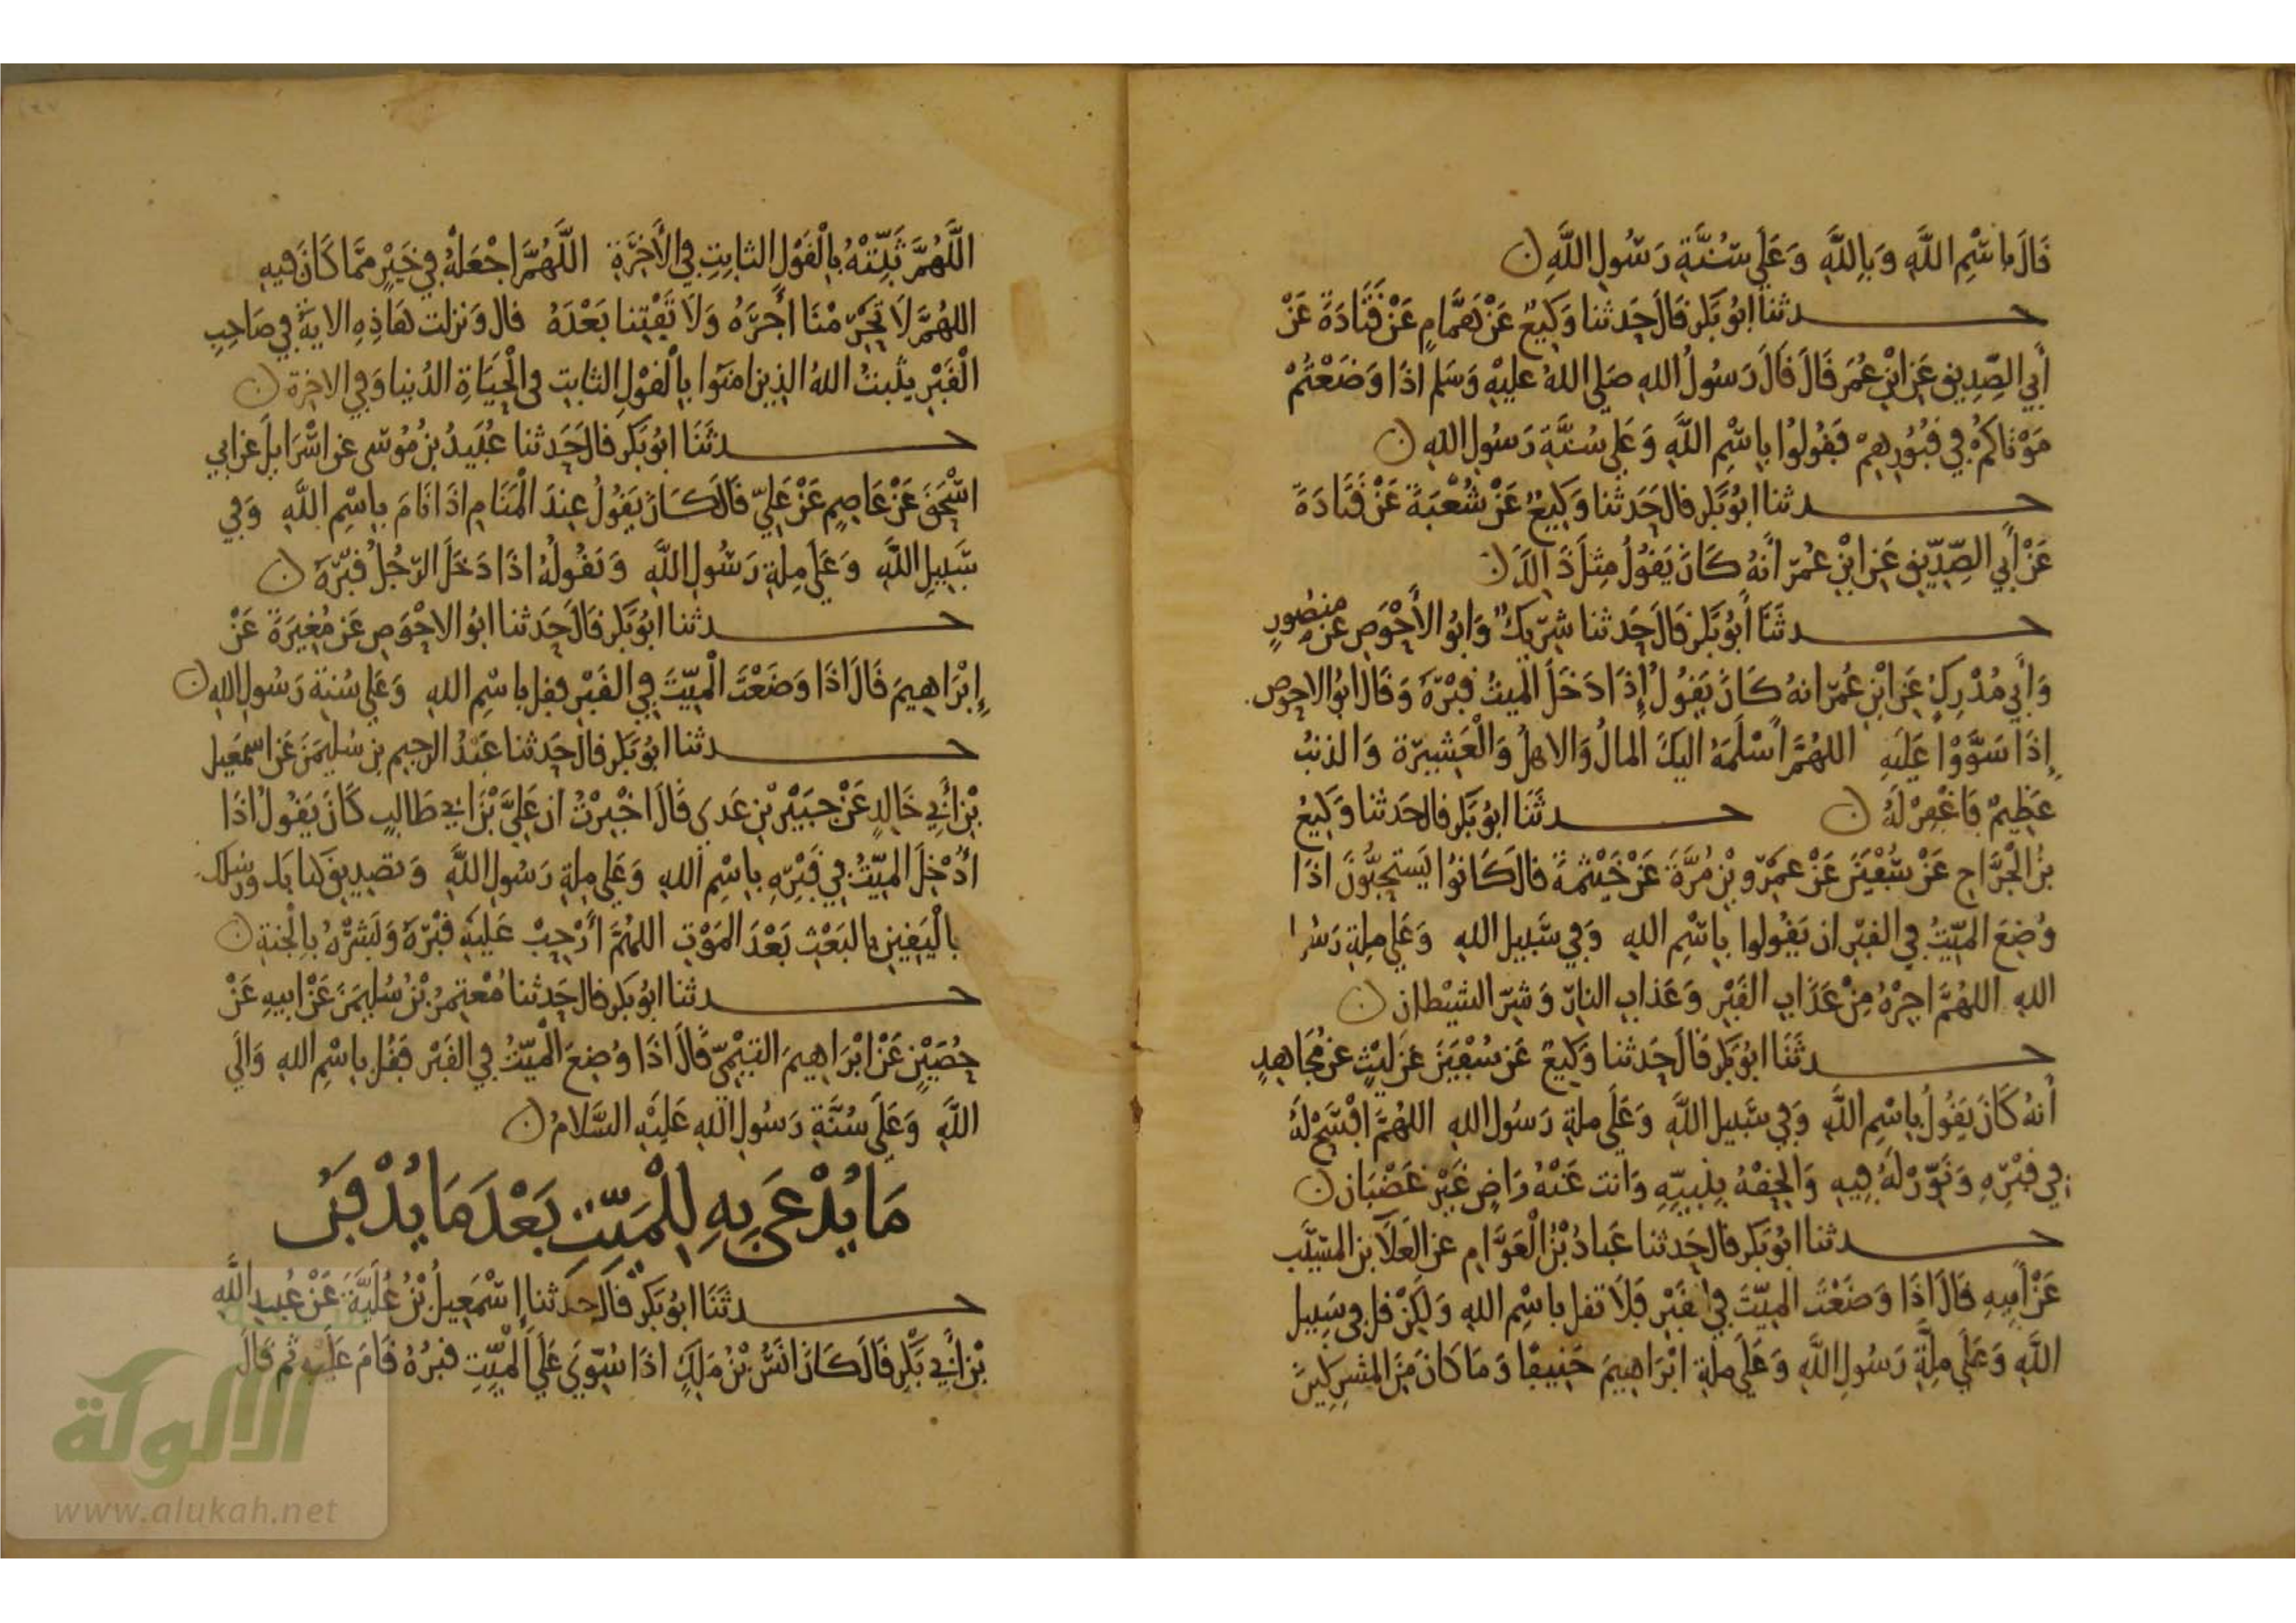 قَالَ بِاسْمِ اللَّهِ وَبِاللَّهِ وَعَلَى سُنَّةِ رَسُولِ اللَّهِ ن
حدثنا ابُو بَكر قال حَدثنا وَكيعٌ عَنْ هَمَّامٍ عَنْ قَتَادَةَ عَنْ
أبي الصِّدِيق عَن ابْنِ عُمَر قَالَ قَالَ رَسُولُ الله صَلى اللهُ عليْهِ وَسَلم اذَا وَضَعْتُمْ
مَوْتَاكُمْ فِي قُبُورِهِمْ فَقُولُوا بِاسْمِ اللَّهِ وَعَلَى سُنَّةِ رَسُولِ اللهِ ن
حدثنا ابُو بَكر قال حَدثنا وَكِيعٌ عَنْ شُعْبَةَ عَنْ قَتَادَةَ
عَنْ أَبي الصِّدِّيقِ عَنِ ابْنِ عُمَرَ انهُ كَانَ يَقُولُ مِثلَ ذَالِكَ ن
حدثَنَا أَبُو بَكر قَالَ حَدثنا شَرِيكٌ وَابُو الأَحْوَص عَن منصُورٍ
وَأَبي مُدْرِكٍ عَن ابْنِ عُمَرَ انهُ كَانَ يَقُولُ إِذَا دَخَلَ الميتُ قَبْرَهُ وَقَالَ ابُو الاحوص
إِذَا سَوَّوْا عَلَيهِ اللهُمَّ أَسْلَمَهُ اليكَ المالُ وَالاهلُ وَالْعَشيرَة وَالذنبُ
عَظِيمٌ فَاغْفِرْ لَهُ ن حدثَنَا ابُو بَكر قال حَدثنا وَكِيعُ
بنُ الْجَرَّاحِ عَنْ سُفْيَنَ عَنْ عَمْرِو بْنِ مُرَّةَ عَنْ خَيْثمَةَ قال كَانوُا يَستحِبُّونَ اذَا
وُضِعَ الميِّتُ فِي القبْرِ ان يَقُولوا بِاسْمِ اللهِ وَفِي سَبيل اللهِ وَعَلَى مِلةِ رَسُول
اللهِ اللهُمَّ اجِرْهُ مِنْ عَذَابِ القَبْرِ وَعَذابِ النارِ وَشرِّ الشيْطان ن
حدثَنَا ابُو بَكر قَالَ حَدثنا وَكِيعٌ عَن سُفْيَنَ عَنْ لَيْثٍ عن مُجَاهِدٍ
أَنهُ كَانَ يَقُولُ بِاسْمِ اللَّهِ وَفِي سَبيل اللَّهِ وَعَلَى ملةِ رَسُول اللهِ اللهُمَّ افْسَحْ لَهُ
فِي قَبْرِهِ وَنَوِّرْ لَهُ فِيهِ وَالحِقْهُ بِنَبيِّهِ وَانت عَنْهُ رَاضٍ غَيْر غَضْبَان ن
حدثنا ابُو بَكر قال حَدثنا عَبادُ بْنُ الْعَوَّامِ عن العَلاَ بن المسَيَّب
عَنْ أَبِيهِ قَالَ اذَا وَضَعْتَ الميِّتَ فِي القَبْرِ فَلَا تقل باسْمِ اللهِ وَلَكِنْ قل فِي سَبِيل
اللَّهِ وَعَلَى مِلَّةِ رَسُولِ اللَّهِ وَعَلَى ملةِ ابْرَاهِيمَ حَنِيفًا وَمَا كَانَ مِنَ المشرِكِينَ
اللَّهُمَّ ثَبِّتْهُ بِالْقَوْلِ الثابِتِ فِي الأَخِرَةِ اللَّهُمَّ اجْعَلْهُ فِي خَيْرٍ مِمَّا كَانَ فِيهِ
اللهُمَّ لَا تَحْرِمْنَا أَجْرَهُ وَلَا تَفْتِنا بَعْدَهُ قال وَنزلت هَاذِهِ الايةُ فِي صَاحِبِ
الْقَبْرِ يثَبتُ اللهُ الذِينَ امَنوا بِالْقَوْلِ الثابتِ فى الْحَيَاةِ الدُنيا وَفِي الاخِرة ن
حدثَنَا ابُو بَكر قال حَدثنا عُبَيدُ بنُ مُوسَى عن اسْرَايلَ عن ابي
اسْحَقَ عَنْ عَاصِمٍ عَنْ عَلِيّ قَالَ كَانَ يَقُولُ عِندَ الْمَنَامِ اذَا نَامَ بِاسْمِ اللَّهِ وَفِي
سَبِيلِ اللَّهِ وَعَلَى مِلةِ رَسُولِ اللَّهِ وَيَقُولُهُ اذَا دَخَلَ الرَّجُلُ قَبْرَهُ ن
حدثنا ابُو بَكر قَالَ حَدثنا ابُو الاحْوَصِ عَن مُغِيرَةَ عَنْ
إِبْرَاهِيمَ قَالَ اذَا وَضَعْتَ الْميِّتَ فِي القَبْرِ فقل باسْمِ اللهِ وَعَلَى سُنةِ رَسُولِ اللهِ ن
حدثنا ابُو بَكر قال حَدثنا عَبْدُ الرحِيمِ بن سُلَيمَنَ عَن اسمَعِيل
بْنِ أَبِي خَالِدٍ عَنْ جبَيْرِ بْنِ عَدى قَالَ اخْبِرْتُ ان عَلِيَّ بْنَ ابي طَالِبٍ كَانَ يَقُولُ اذَا
أُدْخِلَ الميِّتُ فِي قَبْرِهِ بِاسْمِ اللهِ وَعَلَى مِلةِ رَسُولِ اللَّهِ وَتصْدِيق كتابك ورسلك
بِالْيَقِينِ بِالبَعْثِ بَعْدَ المَوْتِ اللهُمَّ أَرْحِبْ عَلَيهِ قَبْرَهُ وَبَشِّرْهُ بِالْجنةِ ن
حدثنا ابُو بَكر قال حَدثنا مُعْتَمِرُ بْنُ سُلَيمَنَ عَنْ ابيهِ عَنْ
حُصَيْنٍ عَنْ ابْرَاهِيمَ التيْمِيّ قَالَ اذَا وُضِعَ الْميِّتُ فِي القَبْر فَقُل بِاسْمِ اللهِ وَالَى
اللَّهِ وَعَلَى سُنَّةِ رَسُولِ اللهِ عَلَيْهِ السَّلَامُ ن
مَا يُدْعَى بِهِ لِلْمَيِّتِ بَعْدَ مَا يُدْفَنُ
حدثَنَا ابُو بَكر قَالَ حَدثنا إِسْمَعِيلُ بْنُ عُلَيَّةَ عَنْ عُبيدِ اللَّهِ
بْنِ أَبِي بَكْرٍ قَالَ كَانَ انَسُ بْنُ مَلِكٍ اذَا سُوِّيَ عَلَى الْمَيِّتِ قبرُهُ قَامَ عَلَيْهِ ثم قَالَ
الألوكة
www.alukah.net